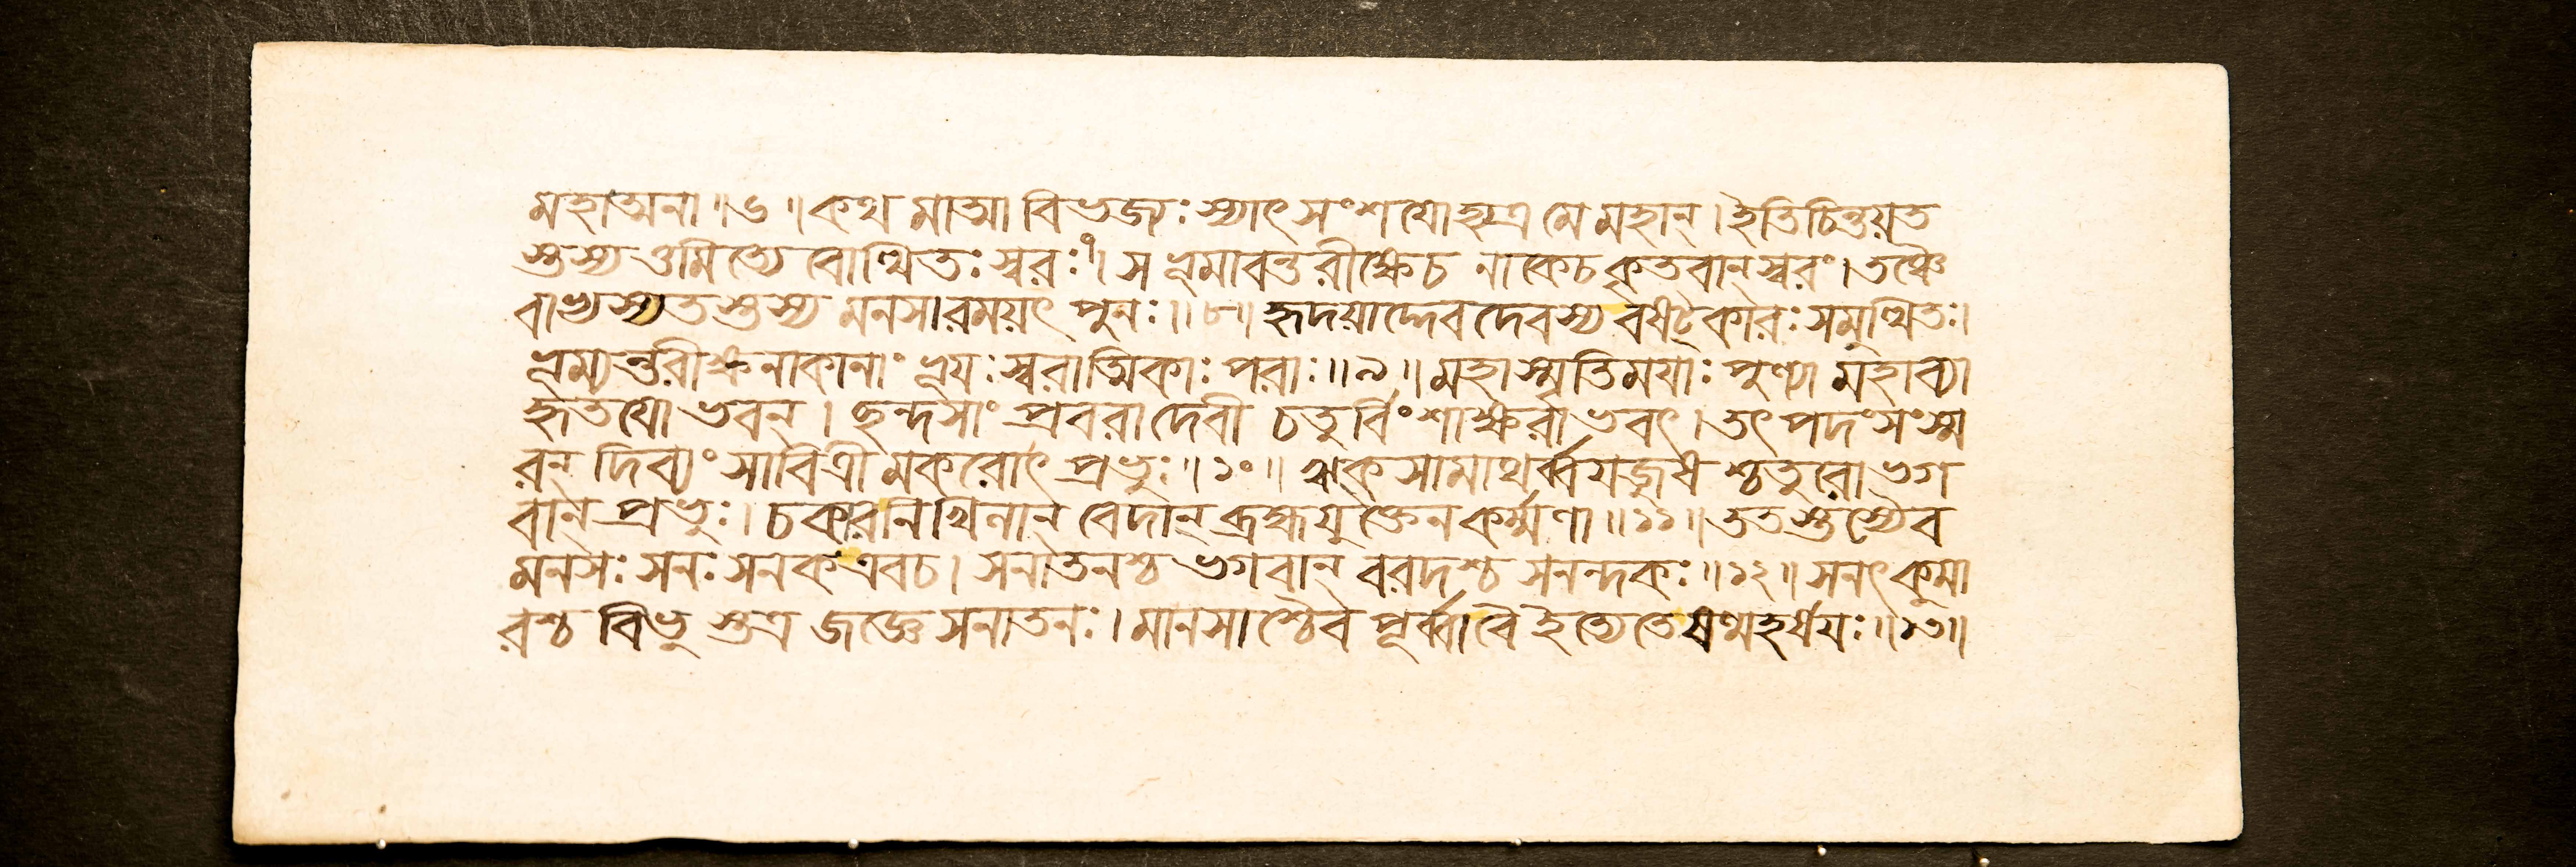 মহাত্মনা ॥৬॥ কথ মাত্মা বিভজ্যঃ স্যাৎ সংশযো হ্যত্র মে মহান্ । ইতি চিন্তয়ত
স্তস্য ওমিত্যে বোত্থিতঃ স্বরঃ ॥৭॥ স ভূমাবন্তরীক্ষেচ নাকেচ কৃতবান্ স্বরং । তঞ্চৈ
বাভ্যস্যতস্তস্য মনসারময়ৎ পুনঃ ॥৮॥ হৃদয়াদ্দেবদেবস্য বষট্কারঃ সমুত্থিতঃ।
ভূম্যন্তরীক্ষনাকানাং ভূযঃ স্বরাত্মিকাঃ পরাঃ ॥৯॥ মহাস্মৃতিময়াঃ পুণ্যা মহাব্যা
হৃতযো ভবন্ । ছন্দসাং প্রবরা দেবী চতুর্বিংশাক্ষরা ভবৎ । তৎ পদং সংস্ম
রন্ দিব্যং সাবিত্রী মকরোৎ প্রভুঃ ॥১০॥ ঋক সামাথর্ব্বযজুষ শ্চতুরো ভগ
বান্ প্রভুঃ । চকার নিখিলান্ বেদান্ ব্রহ্মযুক্তেন কর্ম্মণা ॥১১॥ ততস্তস্যৈব
মনসঃ সনঃ সনক এবচ । সনাতনশ্চ ভগবান্ বরদশ্চ সনন্দকঃ ॥১২॥ সনৎ কুমা
রশ্চ বিভু স্তত্র জজ্ঞে সনাতনঃ । মানসাশ্চৈব পূর্ব্বাবৈ ইত্যেতে ষণ্মহর্ষযঃ ॥১৩॥